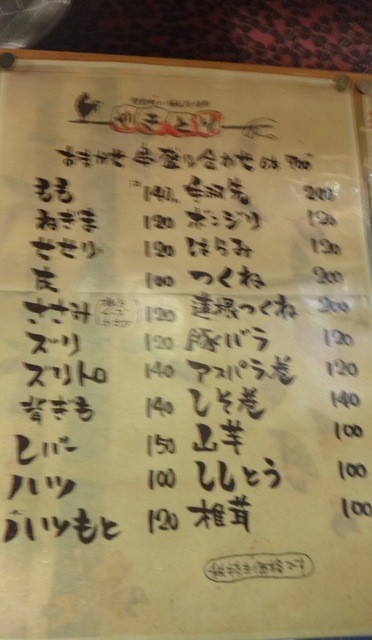 やきとり
おまかせ 串盛り合わせ 700
もも 140
ねぎま 120
せせり 120
皮 100
ささみ 120
ズリ 120
ズリトロ 140
背ぎも 140
レバー 150
ハツ 100
ハツもと 120
手羽先 200
ボンジリ 120
はらみ 120
つくね 200
蓮根つくね 200
豚バラ 120
アスパラ巻 120
しそ巻 140
山芋 100
ししとう 100
椎茸 100
税抜き価格です